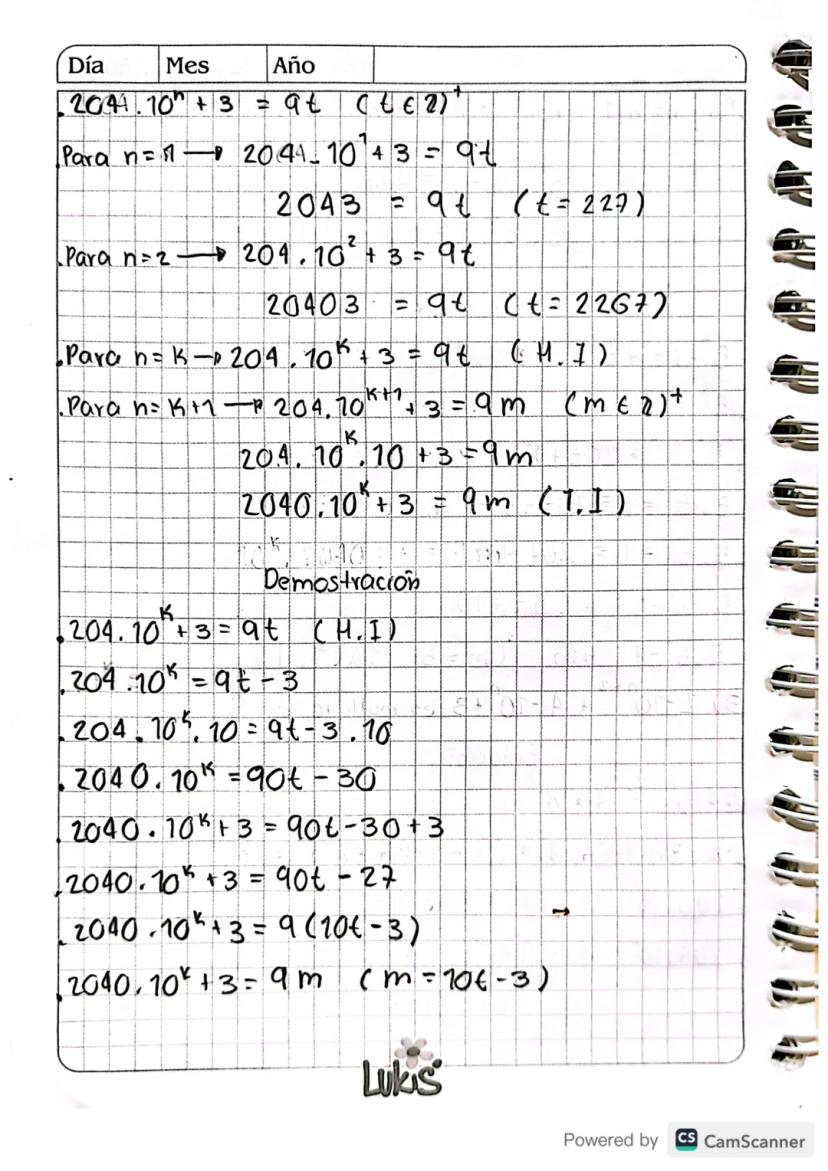 Día Mes Año
. 2044.10ⁿ + 3 = 9t (t ∈ Z)⁺
.Para n=1 → 2041.10¹ + 3 = 9t
2043 = 9t (t = 227)
.Para n=2 → 204.10² + 3 = 9t
20403 = 9t (t = 2267)
.Para n=K → 204.10ᴷ + 3 = 9t (H.I)
.Para n=K+1 → 204.10ᴷ⁺¹ + 3 = 9m (m ∈ Z)⁺
204.10ᴷ.10 + 3 = 9m
2040.10ᴷ + 3 = 9m (T.I)
Demostración
.204.10ᴷ + 3 = 9t (H.I)
.204.10ᴷ = 9t - 3
.204.10ᴷ.10 = 9t - 3.10
.2040.10ᴷ = 90t - 30
.2040.10ᴷ + 3 = 90t - 30 + 3
.2040.10ᴷ + 3 = 90t - 27
.2040.10ᴷ + 3 = 9(10t - 3)
.2040.10ᴷ + 3 = 9m (m = 10t - 3)
Lukis
Powered by CS CamScanner